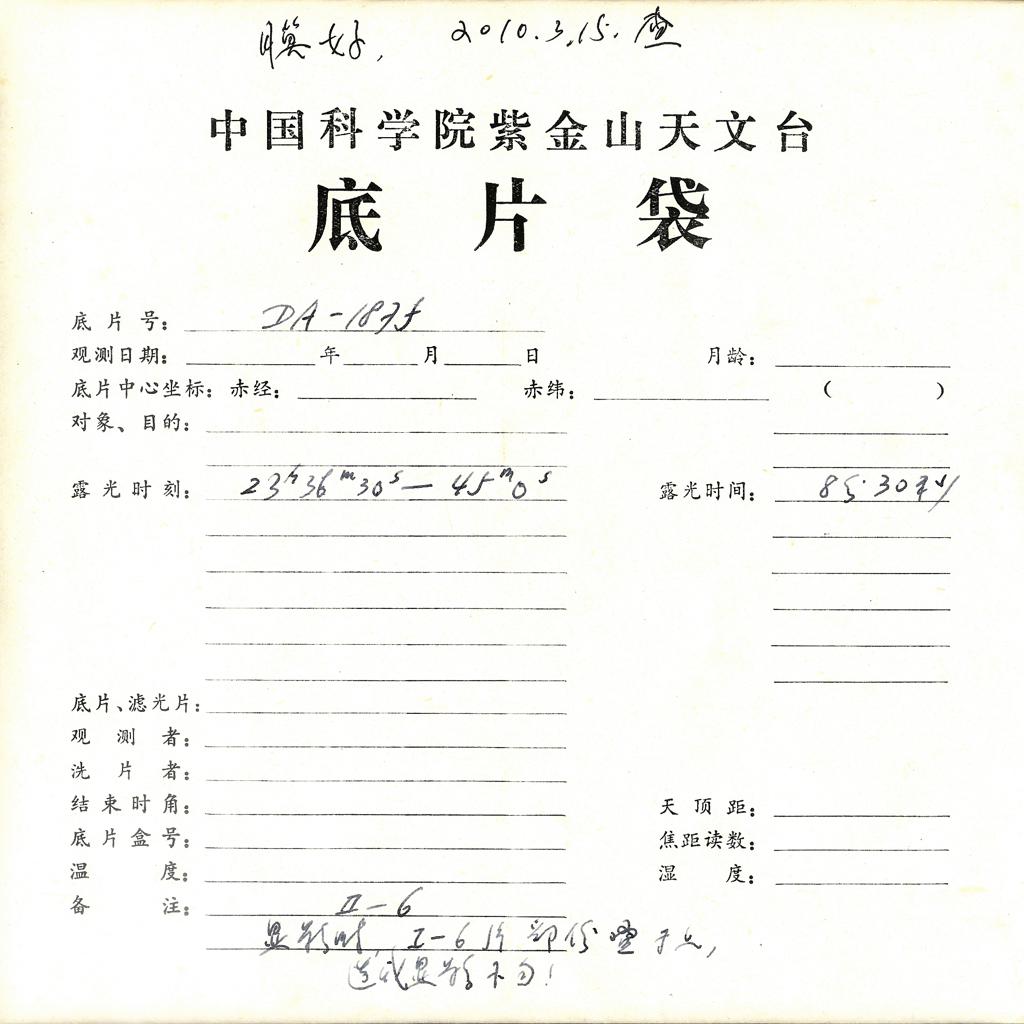 膜好, 2010.3.15.查
中国科学院紫金山天文台
底片袋
底片号: DA-1835
观测日期: 年 月 日 月龄:
底片中心坐标: 赤经: 赤纬: ( )
对象、目的:
露光时刻: 23h36m30s — 45m0s 露光时间: 8分30秒
底片、滤光片:
观测者:
洗片者:
结束时角: 天顶距:
底片盒号: 焦距读数:
温度: 湿度:
备注: II-6
显影时, I-6片部份
造成显影不匀!